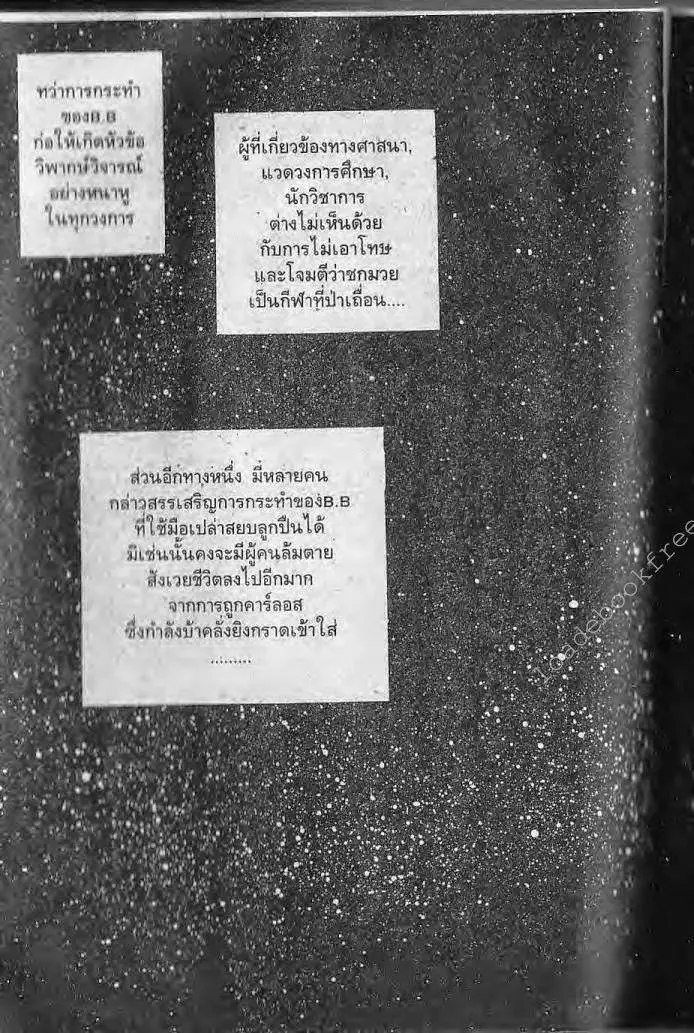 ทว่าการกระทำ
ของB.B
ก่อให้เกิดหัวข้อ
วิพากษ์วิจารณ์
อย่างหนาหู
ในทุกวงการ
ผู้ที่เกี่ยวข้องทางศาสนา,
แวดวงการศึกษา,
นักวิชาการ
ต่างไม่เห็นด้วย
กับการไม่เอาโทษ
และโจมตีว่าชกมวย
เป็นกีฬาที่ป่าเถื่อน....
ส่วนอีกทางหนึ่ง มีหลายคน
กล่าวสรรเสริญการกระทำของB.B
ที่ใช้มือเปล่าสยบลูกปืนได้
มิเช่นนั้นคงจะมีผู้คนล้มตาย
สังเวยชีวิตลงไปอีกมาก
จากการถูกคาร์ลอส
ซึ่งกำลังบ้าคลั่งยิงกราดเข้าใส่
.........
loadebookfree